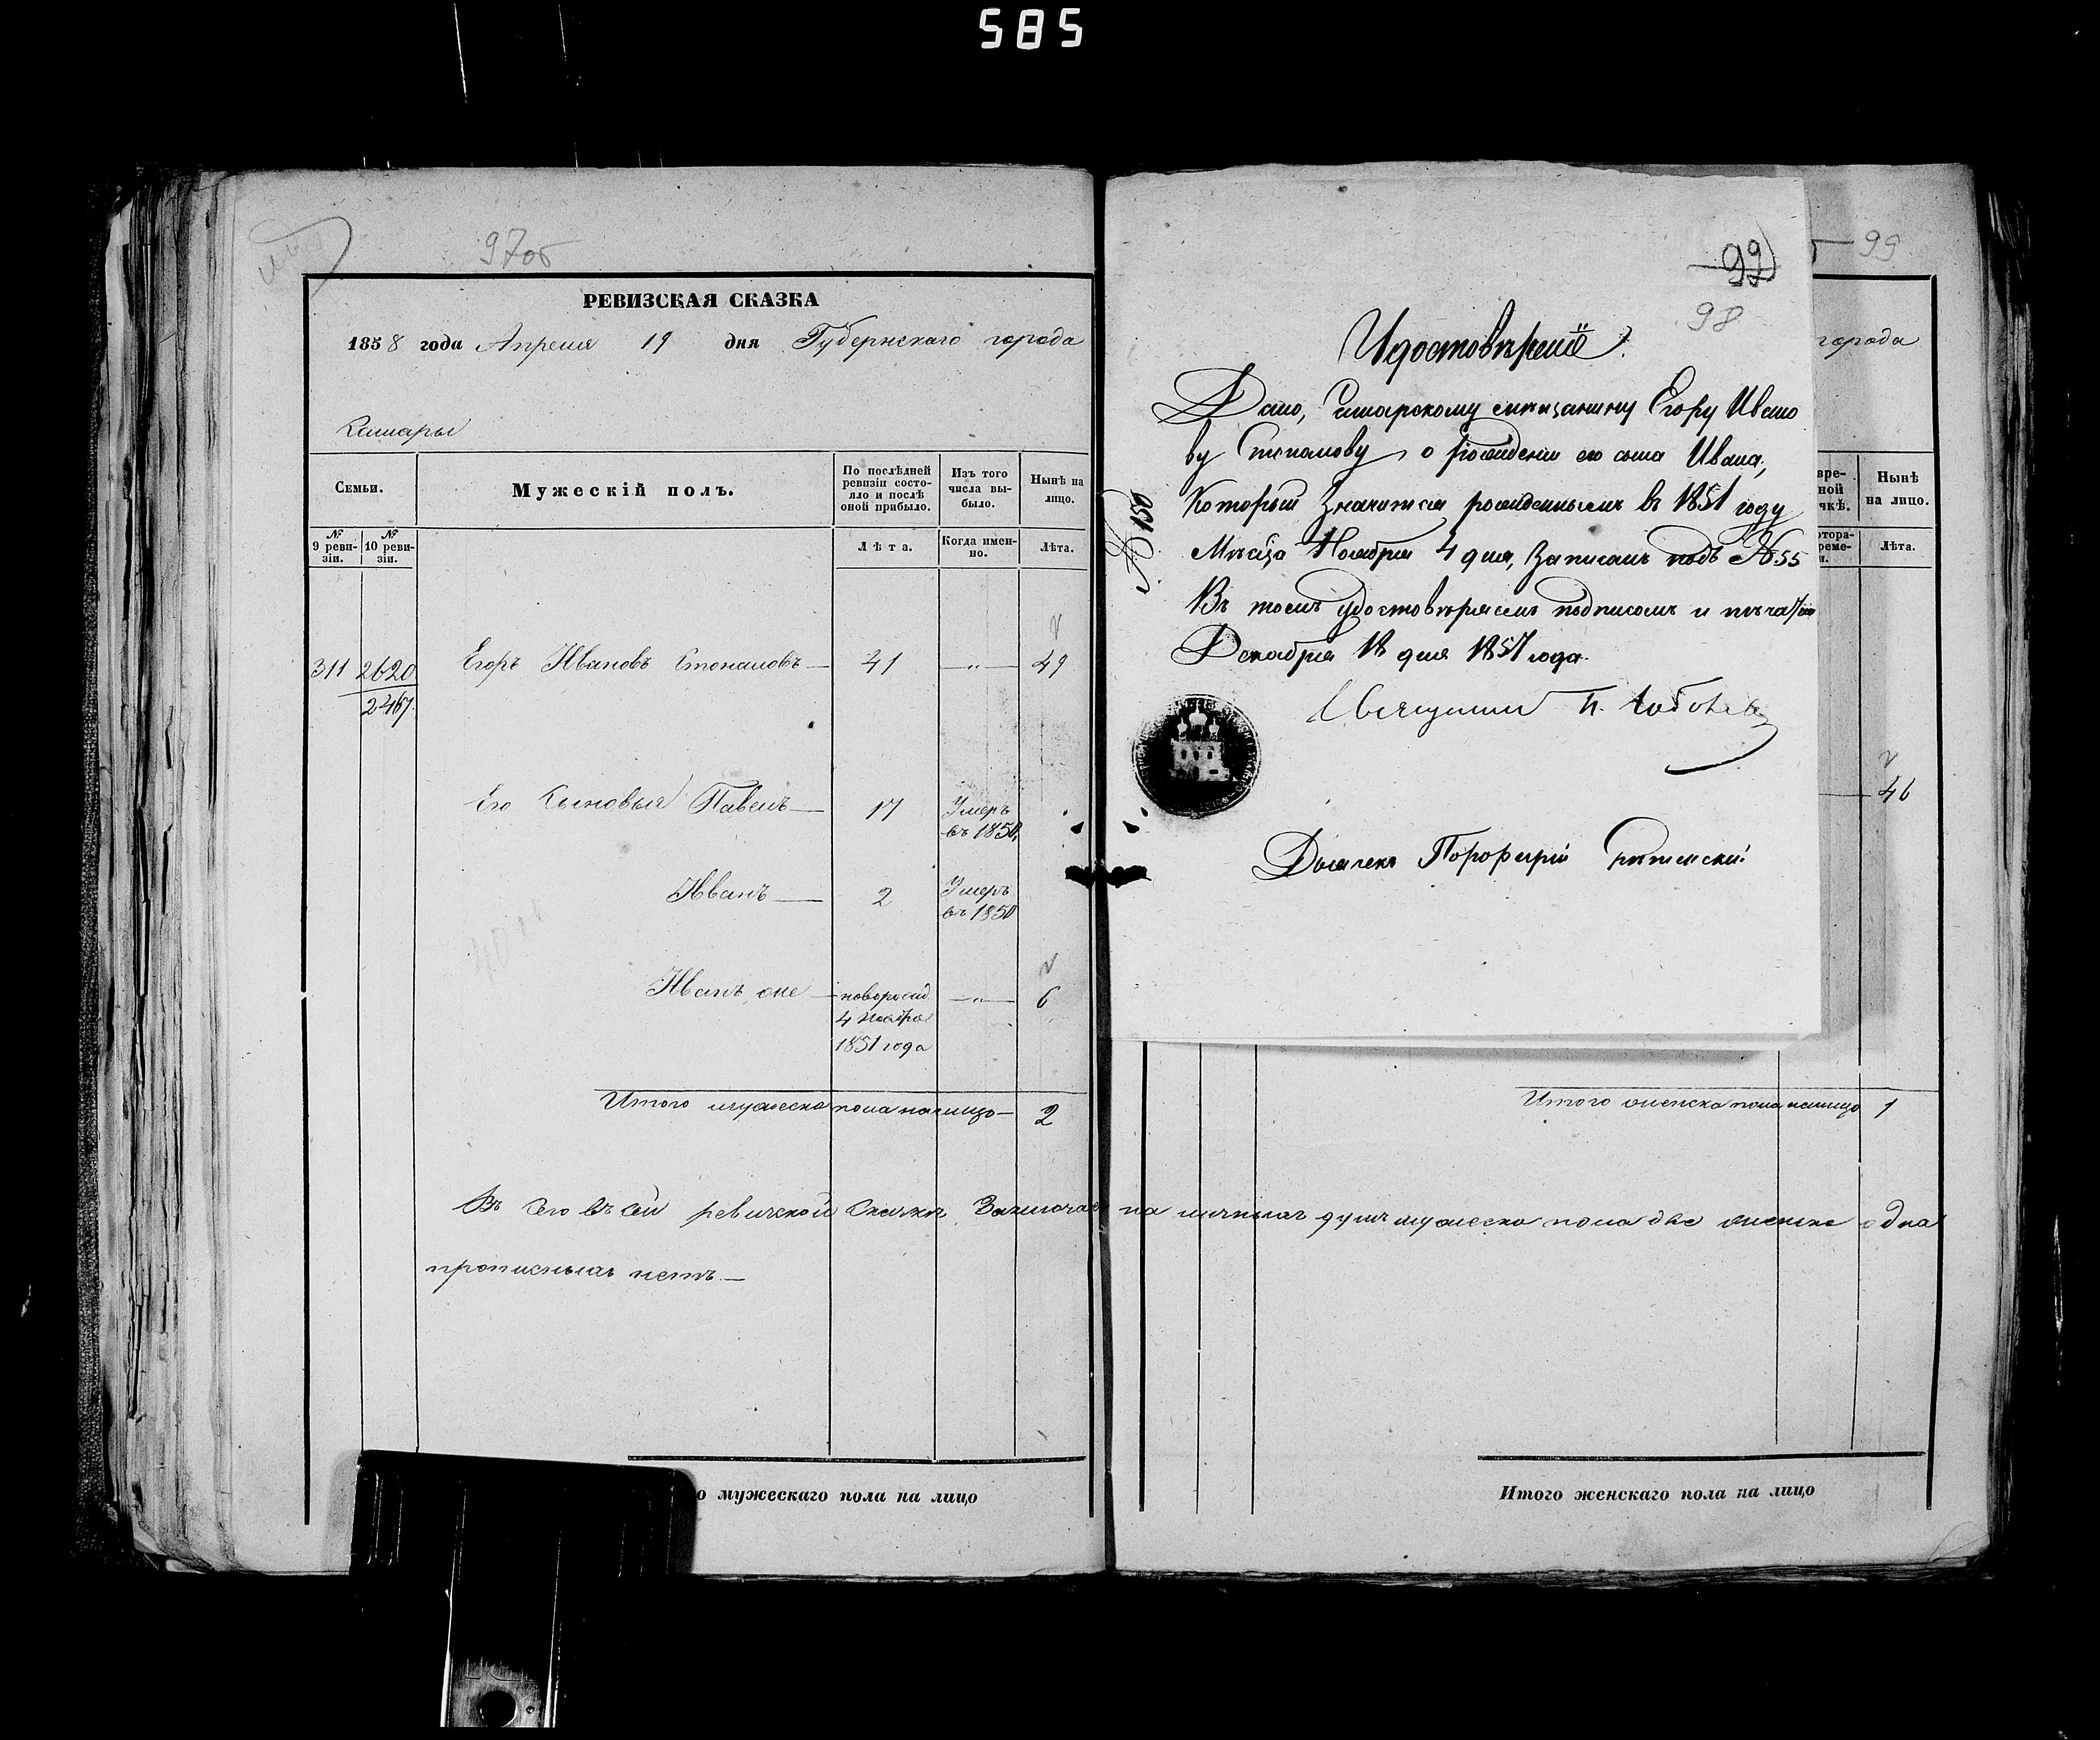 585
97об
РЕВИЗСКАЯ СКАЗКА
1858 года Апреля 19 дня Губернскаго города
Самары
Семьи.
Мужескій полъ.
По послѣдней ревизіи состояло и послѣ оной прибыло.
Изъ того числа выбыло.
Нынѣ на лицо.
№ 9 ревизіи.
№ 10 ревизіи.
Лѣта.
Когда именно.
Лѣта.
311 2620 Егоръ Ивановъ 41 —"— 49
2467
Его Сыновья Павелъ — 17 Умеръ въ 1850,
Иванъ — 2 Умеръ въ 1850
Иванъ же — новорожд. 4 Ноября 1851 года —"— 6
Итого мужеска пола налицо — 2
Въ сей ревизской Сказке Заключае
прописныхъ нетъ. —
о мужескаго пола на лицо
99
98
Удостовѣреніе.
Дано, Самарскому мѣщанину Егору Ивано
ву о рожденіи его сына Ивана,
Который Значится рожденнымъ въ 1851 году
Мѣсяца Ноября 4 дня, Записанъ подъ № 55
Въ томъ удостовѣряемъ подписомъ и печатью
Декабря 18 дня 1857 года.
№ 150
Священникъ П.
Дьячекъ Порфирій
99
города
вре-
ной
чкѣ.
Нынѣ
на лицо.
отора-
реме-
и.
Лѣта.
46
Итого женска пола налицо 1
на личныхъ душъ мужеска пола две женска одна
Итого женскаго пола на лицо